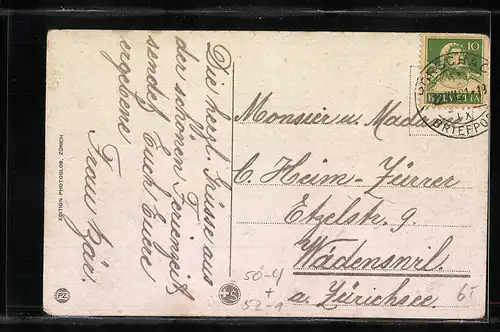 Die herzl. Grüsse aus
der schönen Ferienzeit
sendet Euch Eure
ergebene
Frau Bär.
EDITION PHOTOGLOB, ZÜRICH
PZ
10
HELVETIA
BRIEFPOST
Monsieur u. Madame
C. Heim-Furrer
Etzelstr. 9.
Wädenswil
a. Zürichsee.
50-4
+
52-1